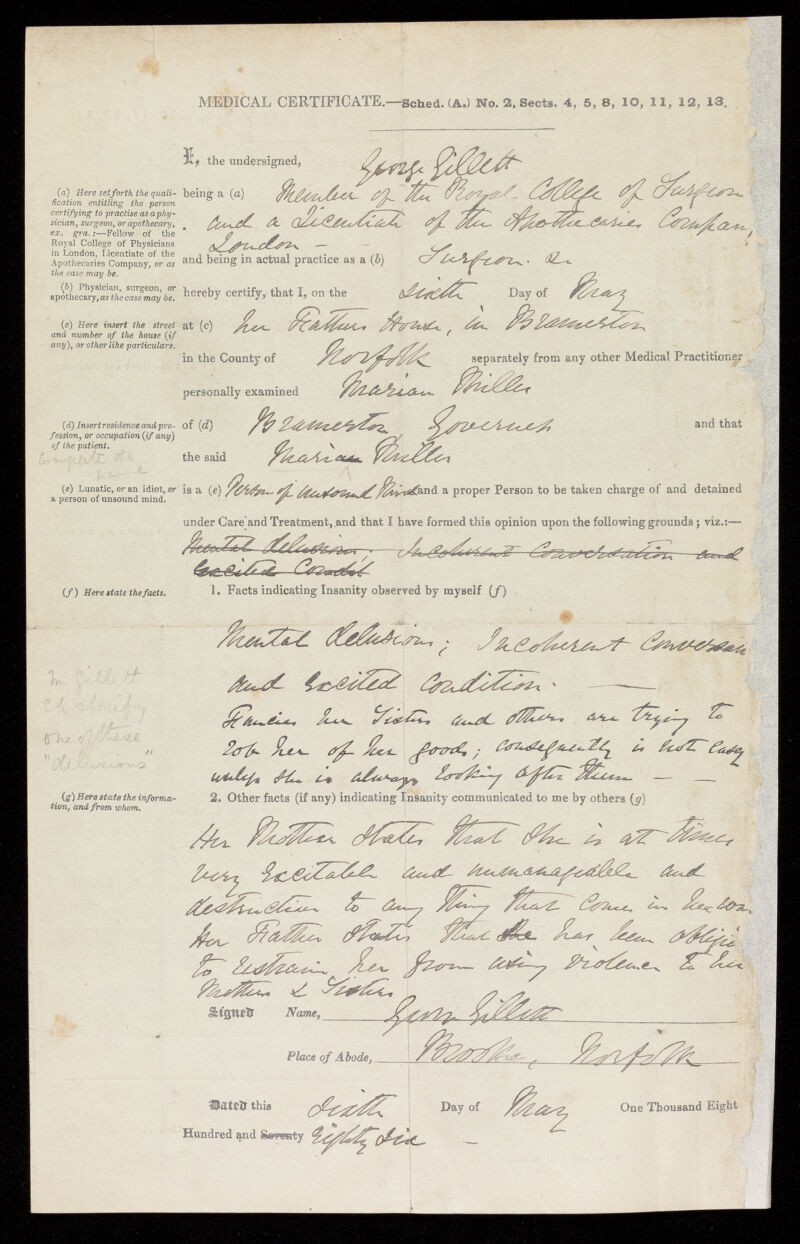 MEDICAL CERTIFICATE.—Sched. (A.) No. 2, Sects. 4, 5, 8, 10, 11, 12, 13.
I, the undersigned, George Gillett
(a) Here set forth the quali-
fication entitling the person
certifying to practise as a phy-
sician, surgeon, or apothecary,
ex. gra.:—Fellow of the
Royal College of Physicians
in London, Licentiate of the
Apothecaries Company, or as
the case may be.
being a (a) Member of the Royal College of Surgeons
and a Licentiate of the Apothecaries Company,
London —
and being in actual practice as a (b) Surgeon. &c
(b) Physician, surgeon, or
apothecary, as the case may be.
hereby certify, that I, on the sixth Day of May
(c) Here insert the street
and number of the house (if
any), or other like particulars.
at (c) her Fathers House, in Bramerton
in the County of Norfolk separately from any other Medical Practitioner
personally examined Marian Miller
(d) Insert residence and pro-
fession, or occupation (if any)
of the patient.
of (d) Bramerton, Governess and that
the said Marian Miller
(e) Lunatic, or an idiot, or
a person of unsound mind.
is a (e) Person of unsound Mind and a proper Person to be taken charge of and detained
under Care and Treatment, and that I have formed this opinion upon the following grounds; viz.:—
Mental delusions; Incoherent Conversation and
Excited Condit
(f) Here state the facts.
1. Facts indicating Insanity observed by myself (f)
Mental delusions; Incoherent Conversation
and excited condition. —
Fancies her Sisters and others are trying to
rob her of her goods; consequently is not easy
unless she is always looking after them — —
Mr Gillett
specify
one of these
"delusions"
(g) Here state the informa-
tion, and from whom.
2. Other facts (if any) indicating Insanity communicated to me by others (g)
Her Mother states that she is at times
very excitable and unmanageable and
destructive to any thing that comes in her way
Her Father states that he has been obliged
to restrain her from using violence to her
Mother & Sisters
Signed Name, George Gillett
Place of Abode, Brooke, Norfolk
Dated this sixth Day of May One Thousand Eight
Hundred and Seventy Eighty Six —